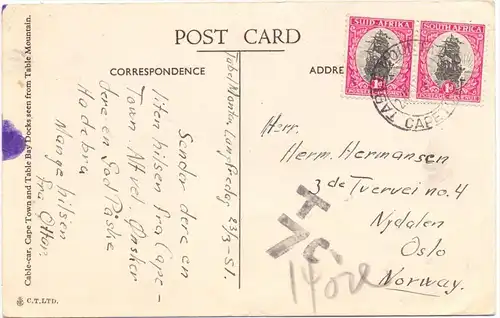 POST CARD
CORRESPONDENCE
ADDRE
Cable-car, Cape Town and Table Bay Docks seen from Table Mountain.
C.T. LTD.
SUID-AFRIKA
SOUTH AFRICA
1D
1D
CAPE
23/3-51.
Sender dere en
liten hilsen fra Cape-
Town. Alt vel. Ønsker
dere en God Påske
Hadebra
Mange hilsen
fra Ottar
Herr.
Herm. Hermansen
3 de Tverrvei no. 4
Nydalen
Oslo
Norway.
T
7c.
14 øre